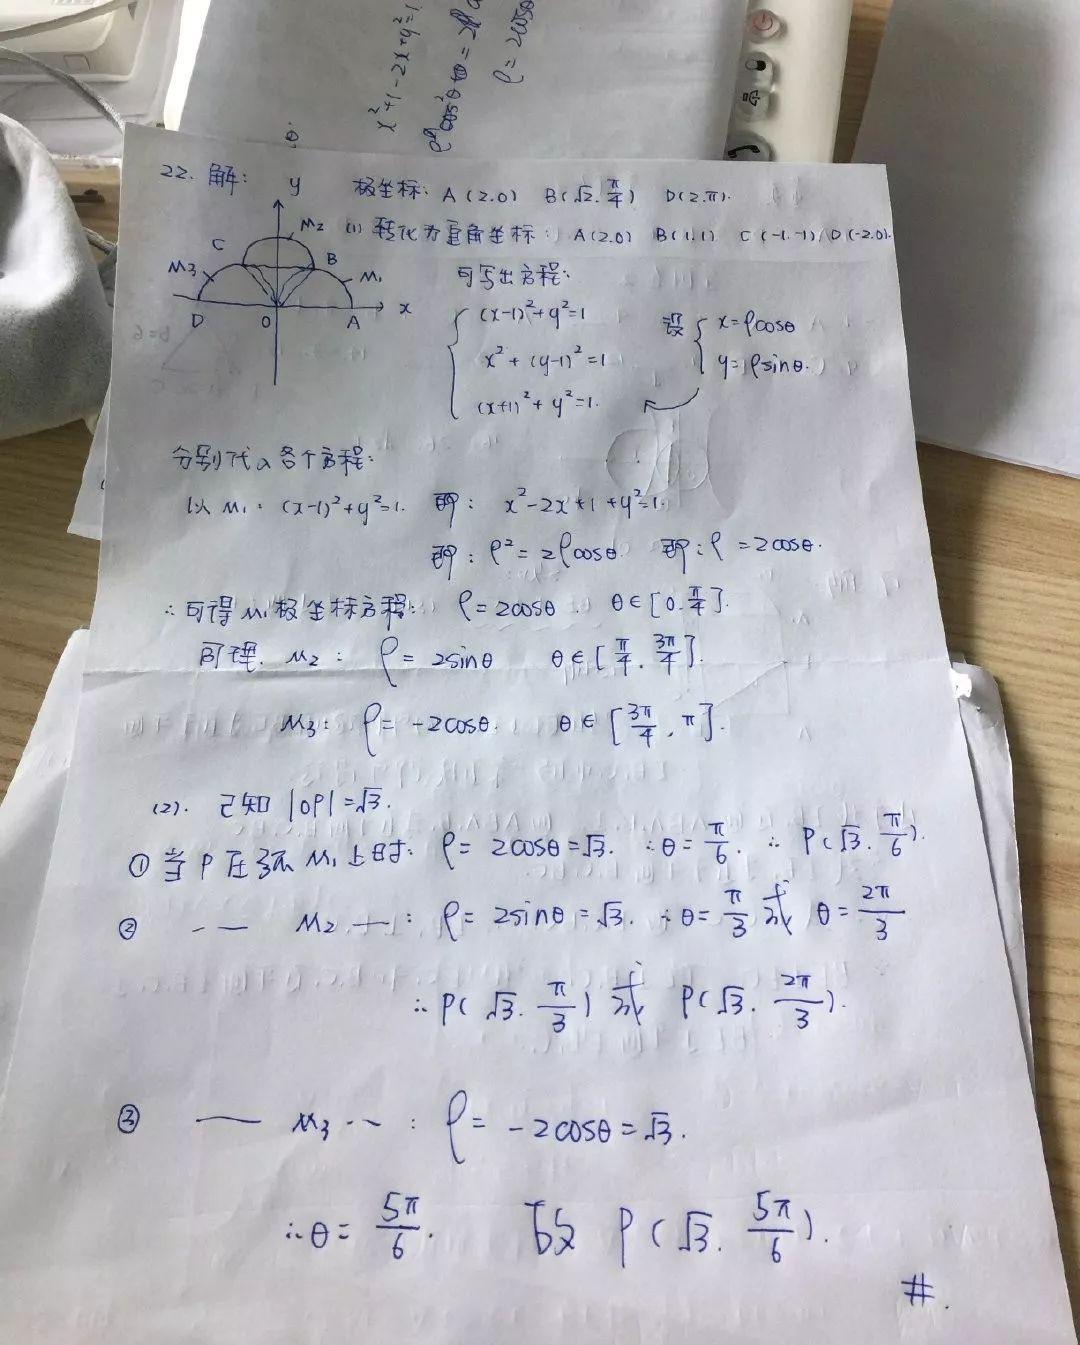 x²+1-2x+y²=1
ρ=2cosθ
22. 解:
y
M₂
C
B
M₃
M₁
x
D
O
A
极坐标: A(2.0) B(√2.π/4) D(2.π).
(1) 转化为直角坐标: A(2.0) B(1.1) C(-1.-1) D(-2.0).
可写出方程:
(x-1)²+y²=1
x²+(y-1)²=1
(x+1)²+y²=1.
设 { x=ρcosθ
y=ρsinθ.
分别代入各个方程:
以M₁: (x-1)²+y²=1. 即: x²-2x+1+y²=1.
即: ρ²=2ρcosθ 即: ρ=2cosθ.
∴可得M₁极坐标方程: ρ=2cosθ θ∈[0.π/4].
同理. M₂: ρ=2sinθ θ∈[π/4.3π/4].
M₃: ρ=-2cosθ. θ∈[3π/4.π].
(2). 已知|OP|=√3.
① 当P在弧M₁上时: ρ=2cosθ=√3. ∴θ=π/6. ∴P(√3.π/6).
② -- — M₂ —: ρ=2sinθ=√3. ∴θ=π/3 或 θ=2π/3
∴P(√3.π/3) 或 P(√3.2π/3).
③ — M₃ --: ρ=-2cosθ=√3.
∴θ=5π/6. 故 P(√3.5π/6).
#.